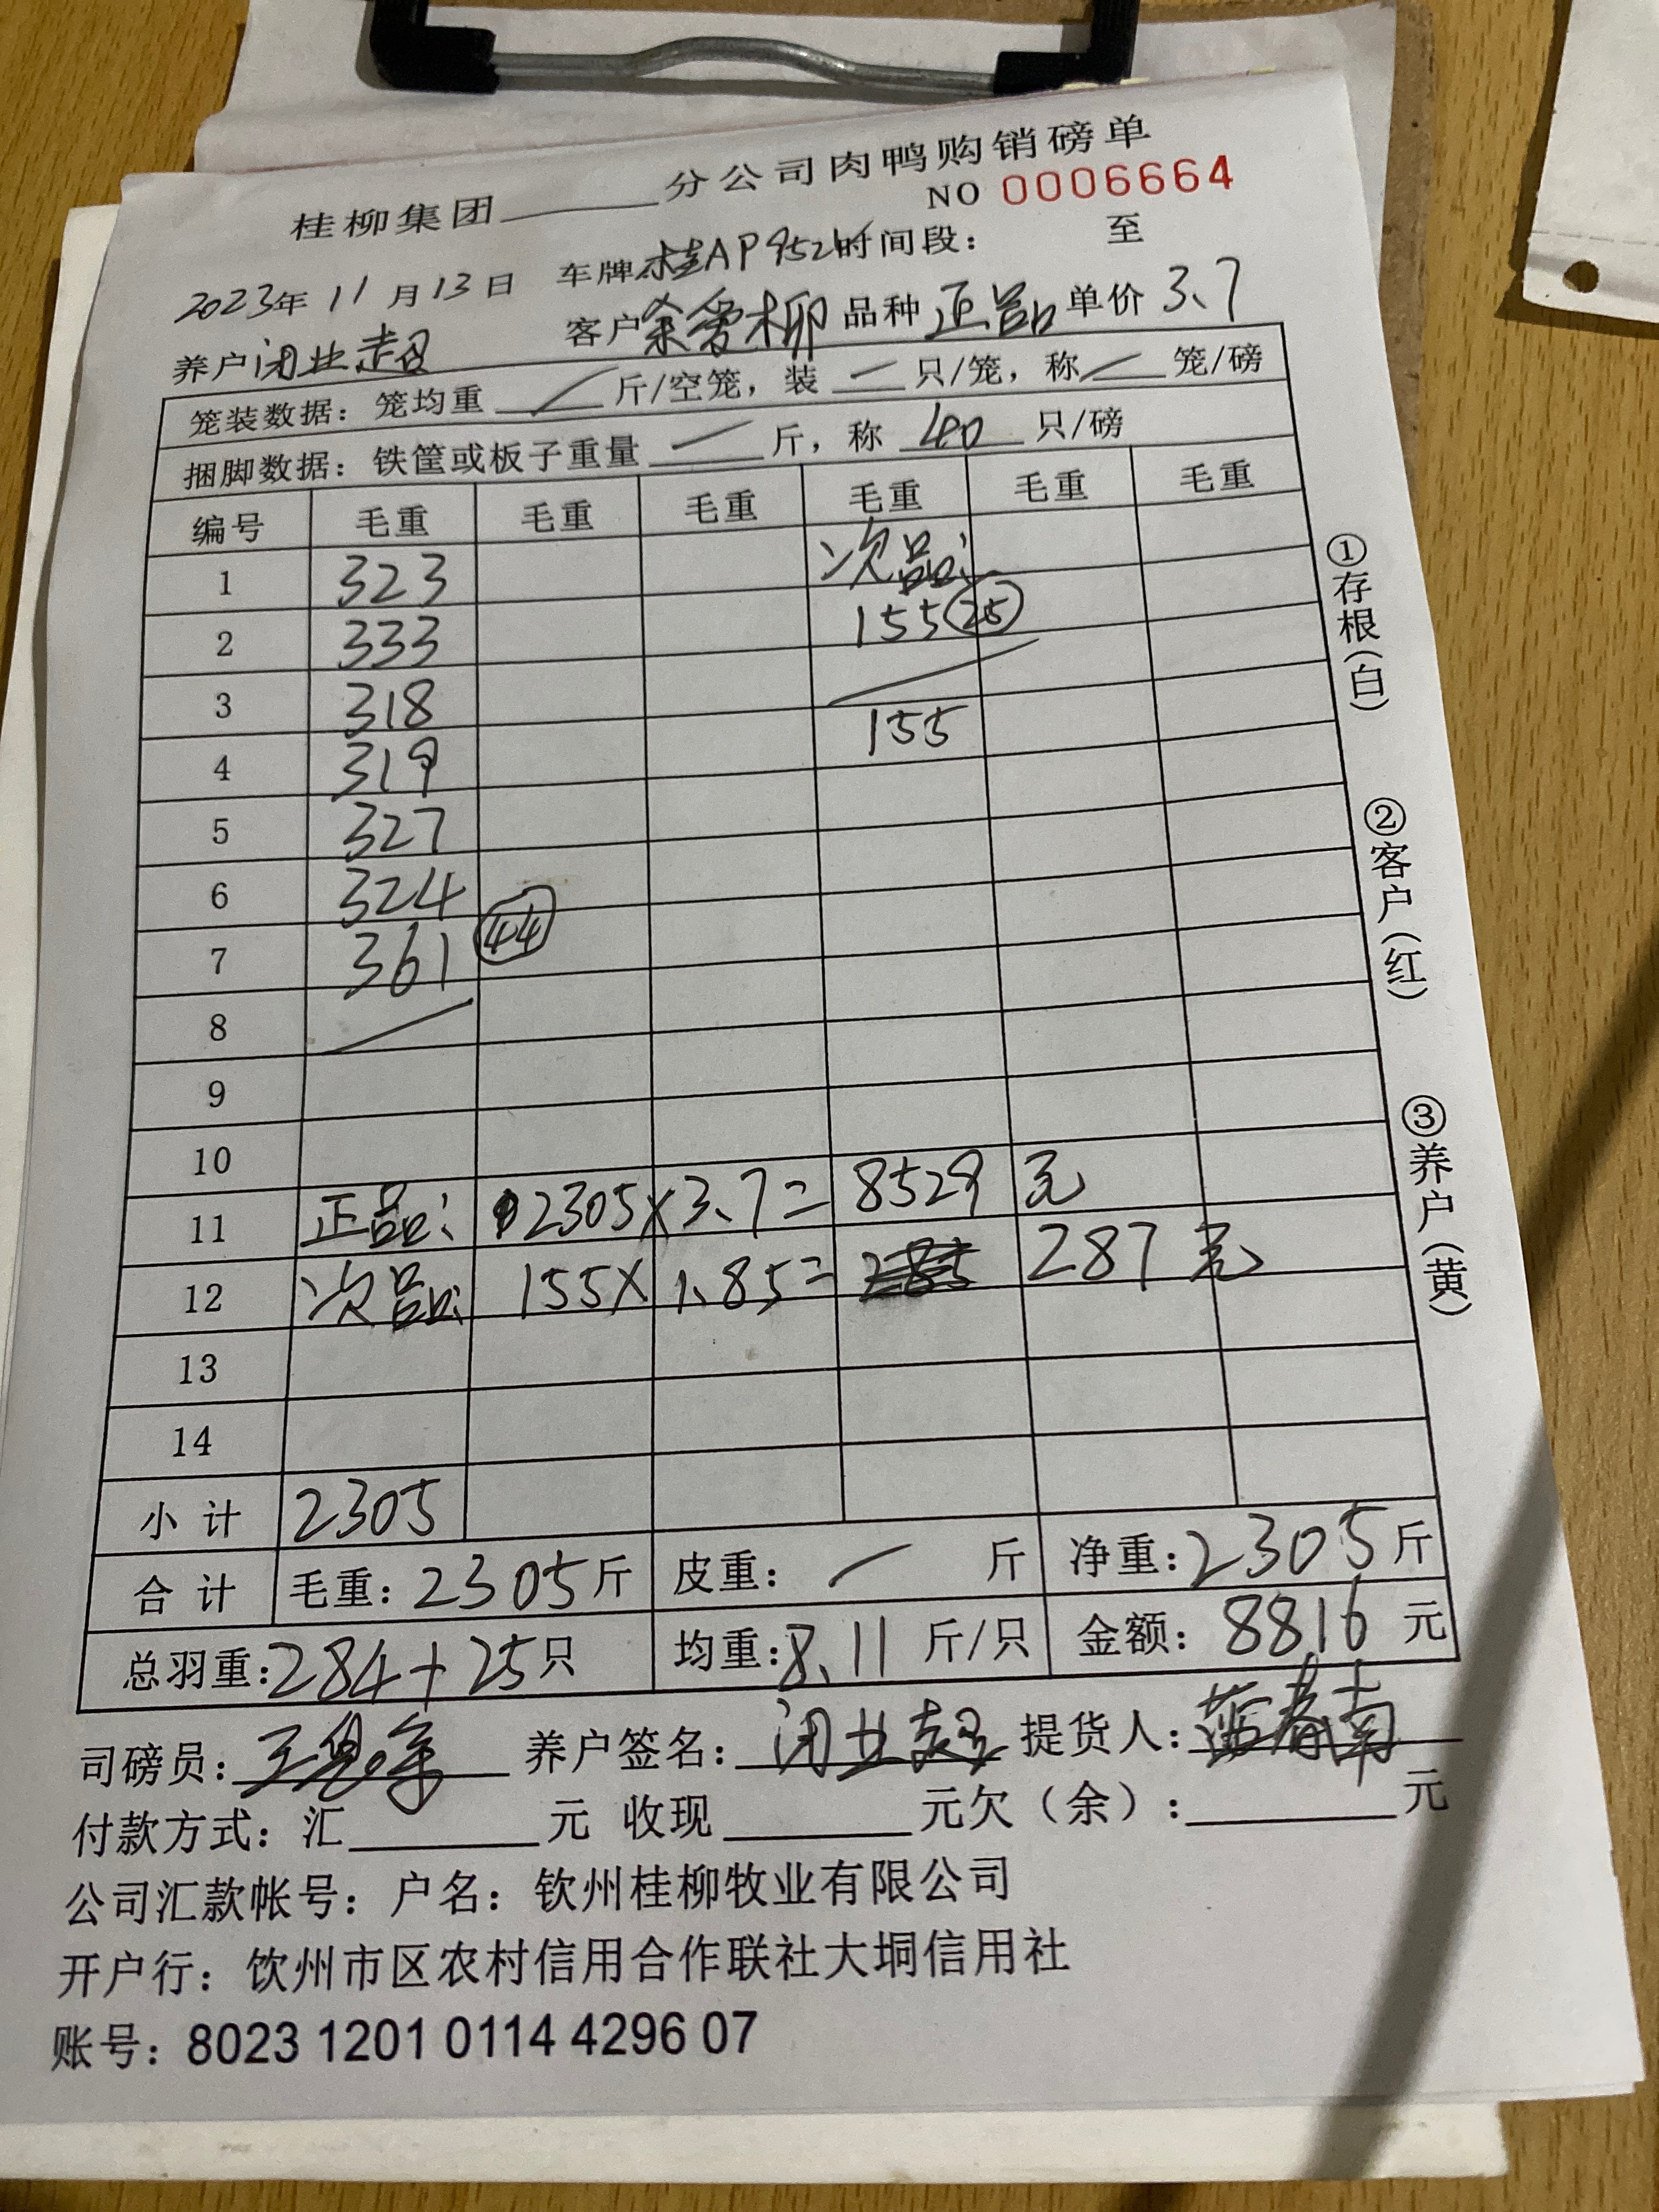 桂柳集团______分公司肉鸭购销磅单
NO 0006664
2023年11月13日 车牌桂AP952 时间段： 至
养户闭业超 客户余爱柳 品种 正品 单价 3.7
笼装数据：笼均重 / 斤/空笼，装 / 只/笼，称 / 笼/磅
捆脚数据：铁筐或板子重量 / 斤，称 40 只/磅
编号 毛重 毛重 毛重 毛重 毛重 毛重
1 323 次品：
2 333 155 25
3 318
4 319 155
5 327
6 324
7 361 44
8
9
10
11 正品： 2305×3.7= 8529 元
12 次品： 155×1.85= 287 元
13
14
小计 2305
合计 毛重：2305斤 皮重：/ 斤 净重：2305斤
总羽重：284+25只 均重：8.11 斤/只 金额：8816 元
司磅员： 养户签名：闭业超 提货人：蓝春南
付款方式：汇______元 收现______元欠（余）：______元
公司汇款帐号：户名：钦州桂柳牧业有限公司
开户行：钦州市区农村信用合作联社大垌信用社
账号：8023 1201 0114 4296 07
①存根（白）
②客户（红）
③养户（黄）